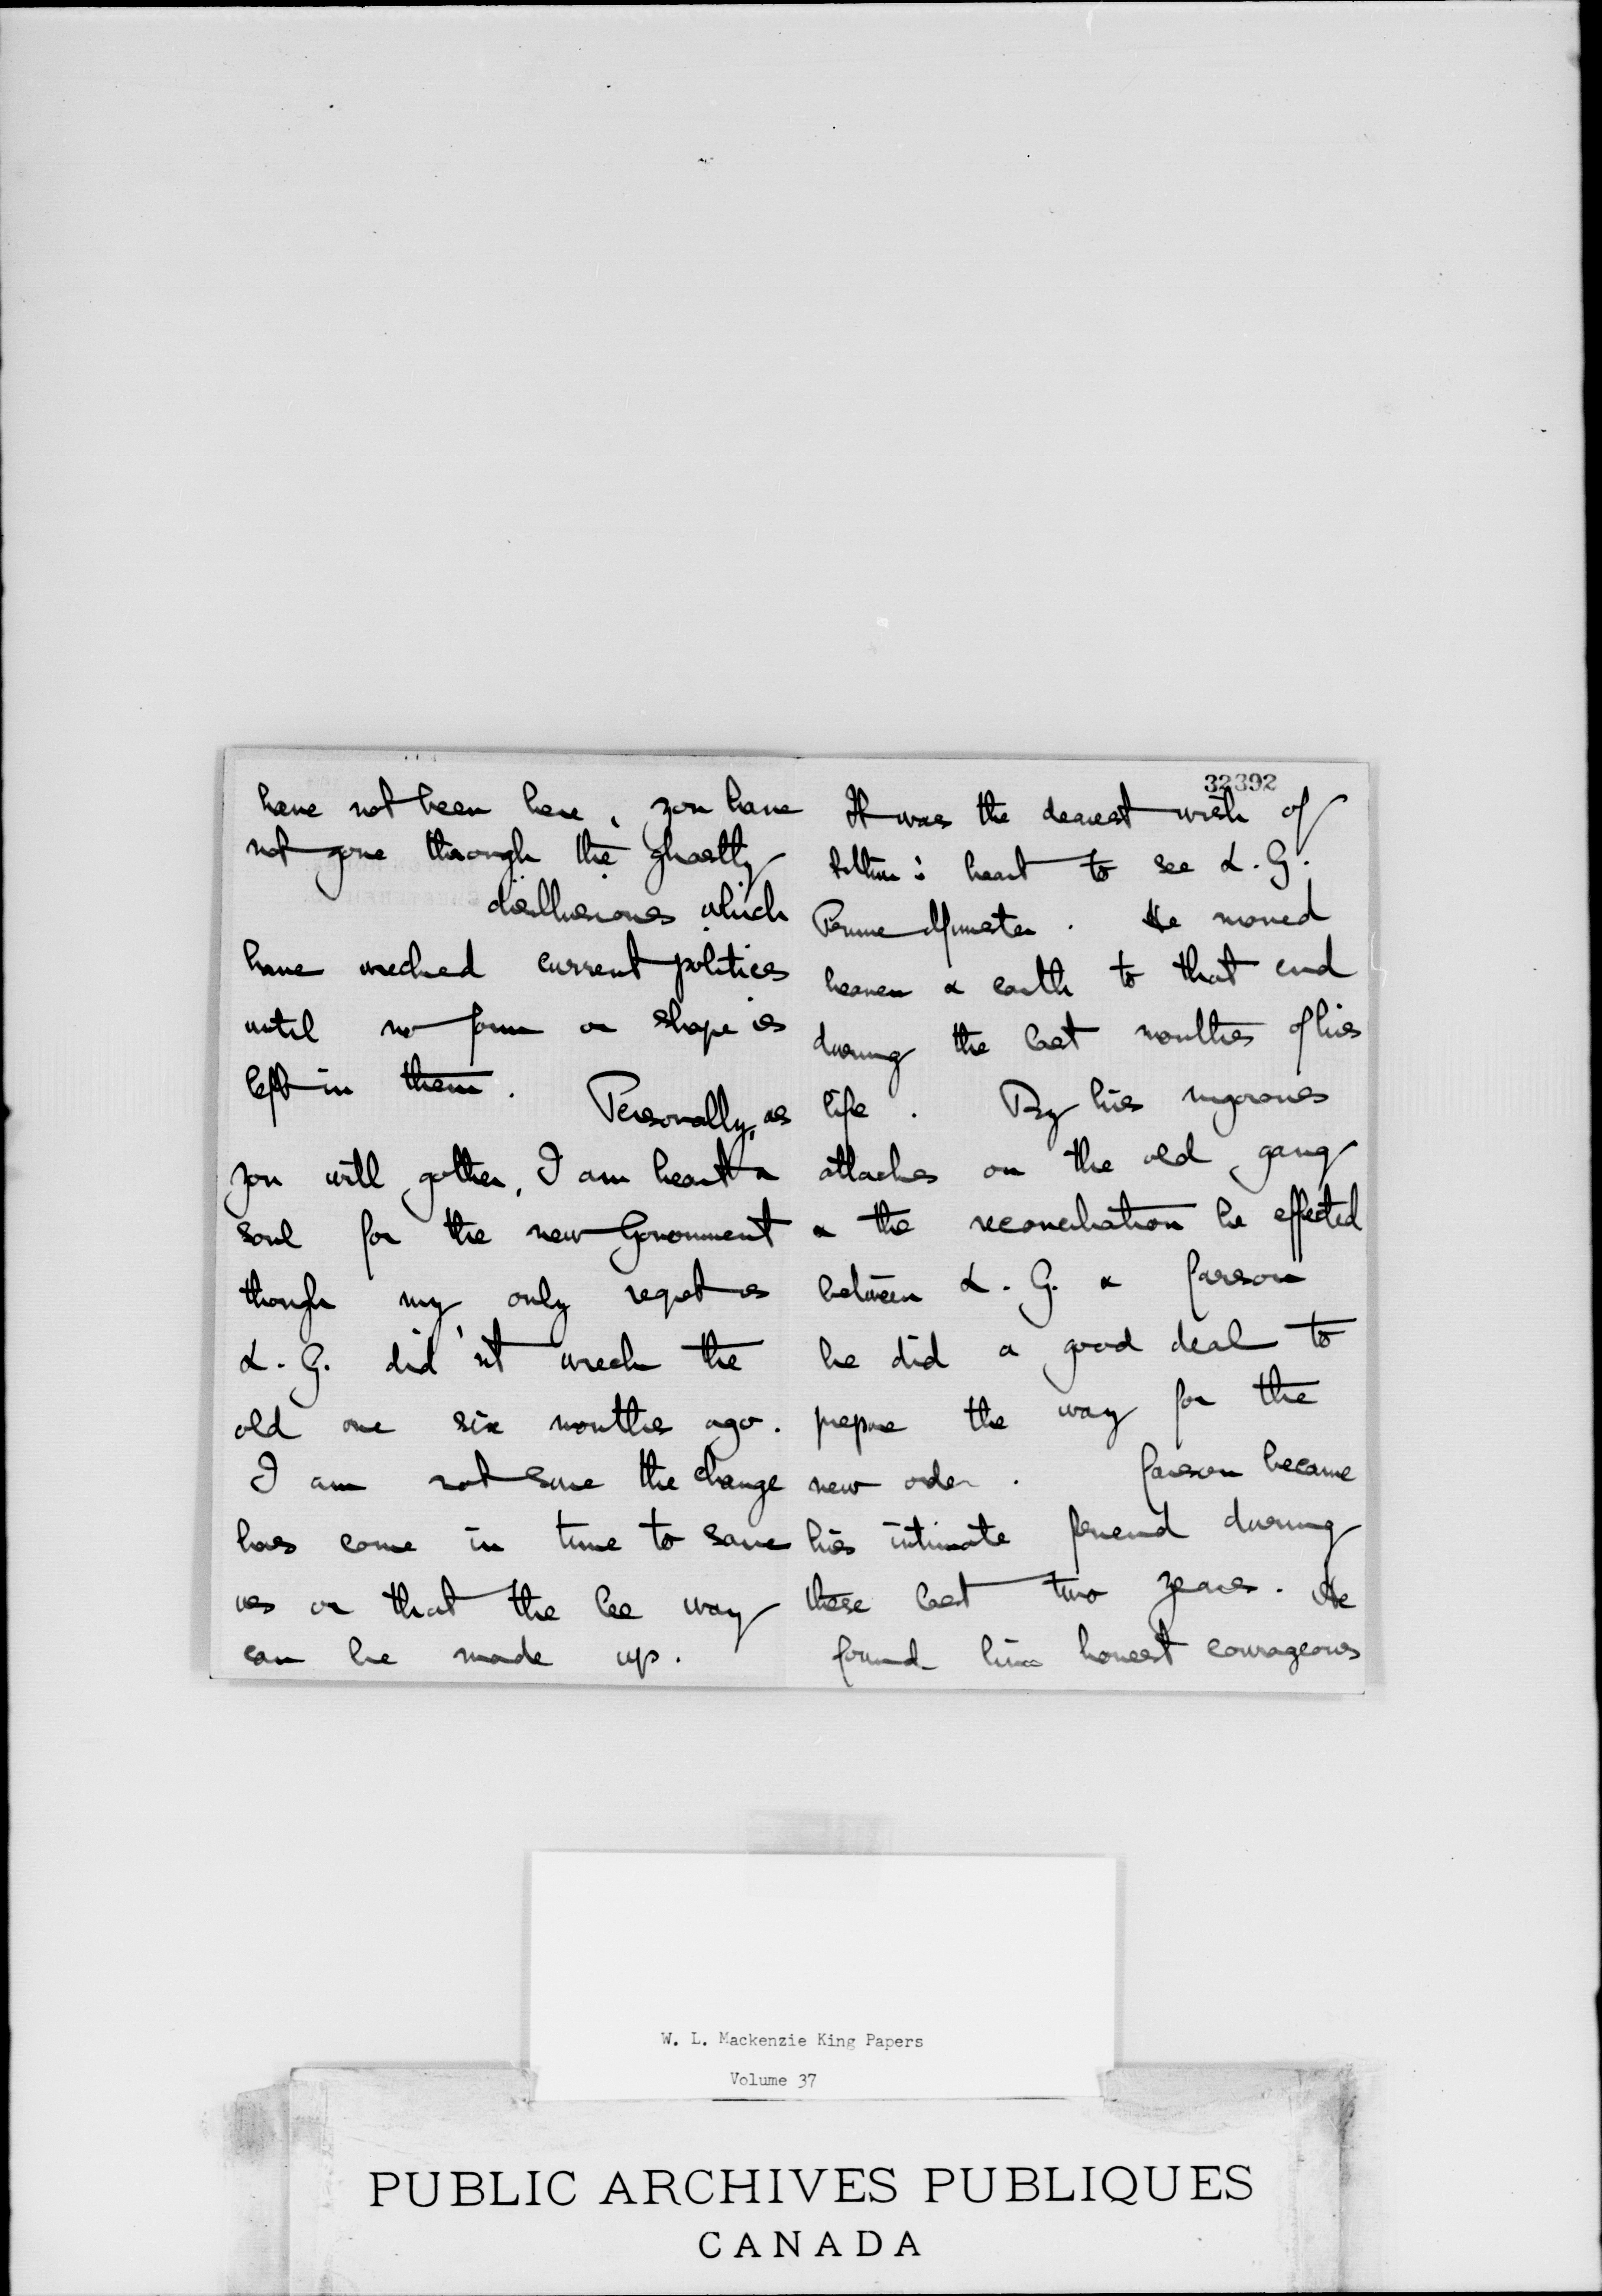 have not been here, you have
not gone through the ghastly
disillusiones which
have wrecked current politics
until no form or shape is
left in them. Personally, as
you will gather, I am heart &
soul for the new Government
though my only regret is
L. G. did'nt wreck the
old one six months ago.
I am not sure the change
has come in time to save
us or that the lee way
can be made up.
32392
It was the dearest wish of
heart to see L. G.
Prime Minister. He moved
heaven & earth to that end
during the last months of his
life. By his vigorous
attacks on the old gang
& the reconciliation he effected
between L. G. & Carson
he did a good deal to
prepare the way for the
new order. Carson became
his intimate friend during
these last two years. He
found him honest courageous
W. L. Mackenzie King Papers
Volume 37
PUBLIC ARCHIVES PUBLIQUES
CANADA